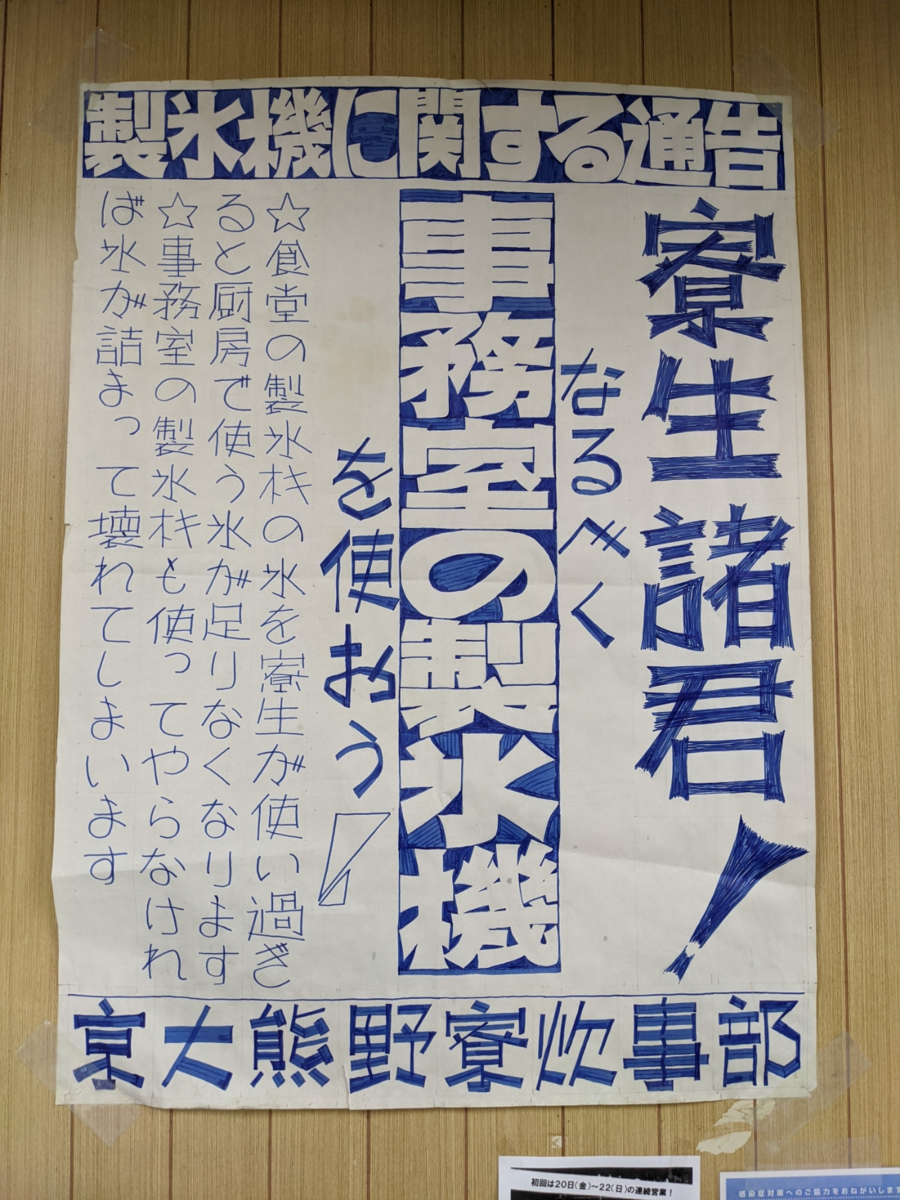 製氷機に関する通告
寮生諸君！
なるべく
事務室の製氷機
を使おう！
☆食堂の製氷機の氷を寮生が使い過ぎ
ると厨房で使う氷が足りなくなります
☆事務室の製氷機も使ってやらなけれ
ば氷が詰まって壊れてしまいます
京大熊野寮炊事部
初回は20日(金)～22(日)の連続営業！
感染症対策へのご協力をおねがいします